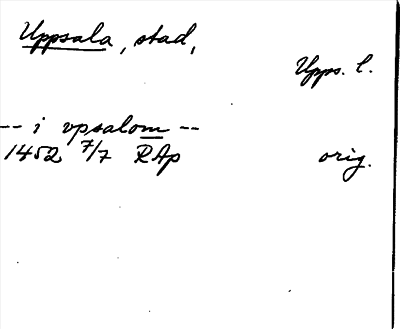 Uppsala, stad,
Upps. l.
-- i vpsalom --
1452 7/7 RAp orig.